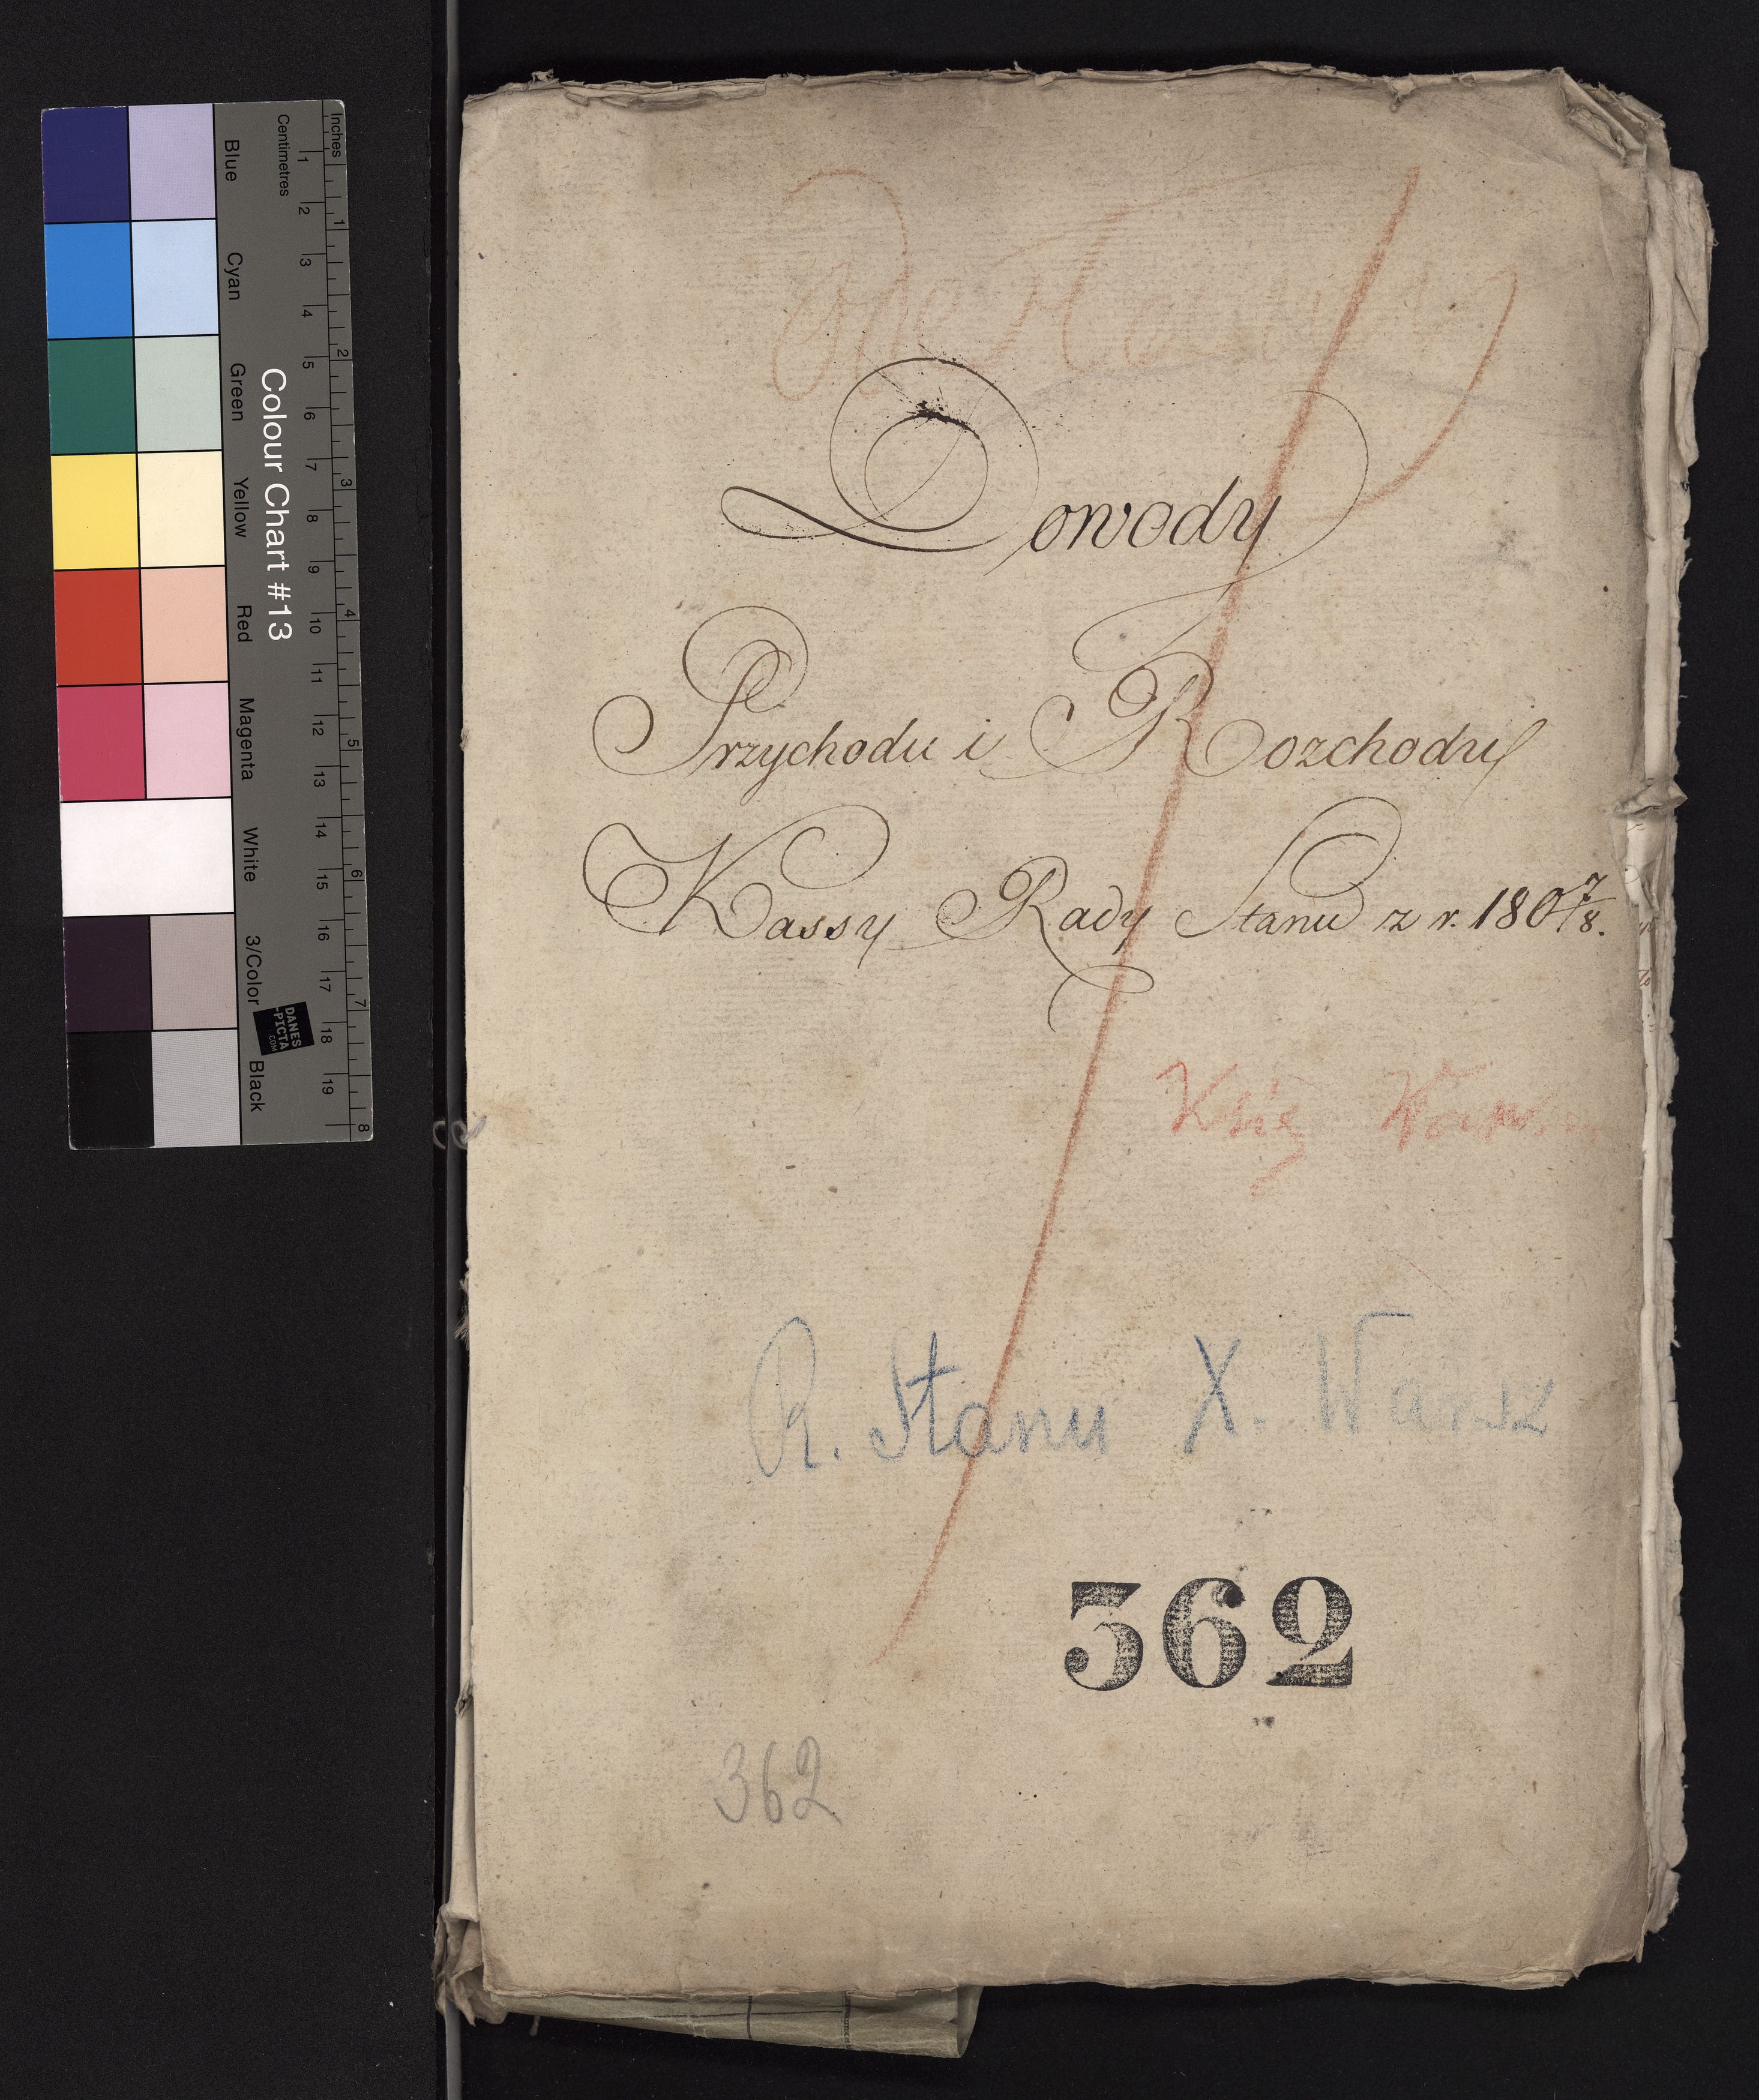 Dowody
Przychodu i Rozchodu
Kassy Rady Stanu z r. 1807/8.
Księ
R. Stanu X. Warsz
362
362
Colour Chart #13
Blue
Cyan
Green
Yellow
Red
Magenta
White
3/Color
Black
Inches
Centimetres
1 2 3 4 5 6 7 8 9 10 11 12 13 14 15 16 17 18 19
1 2 3 4 5 6 7 8
DANES
-PICTA
.COM